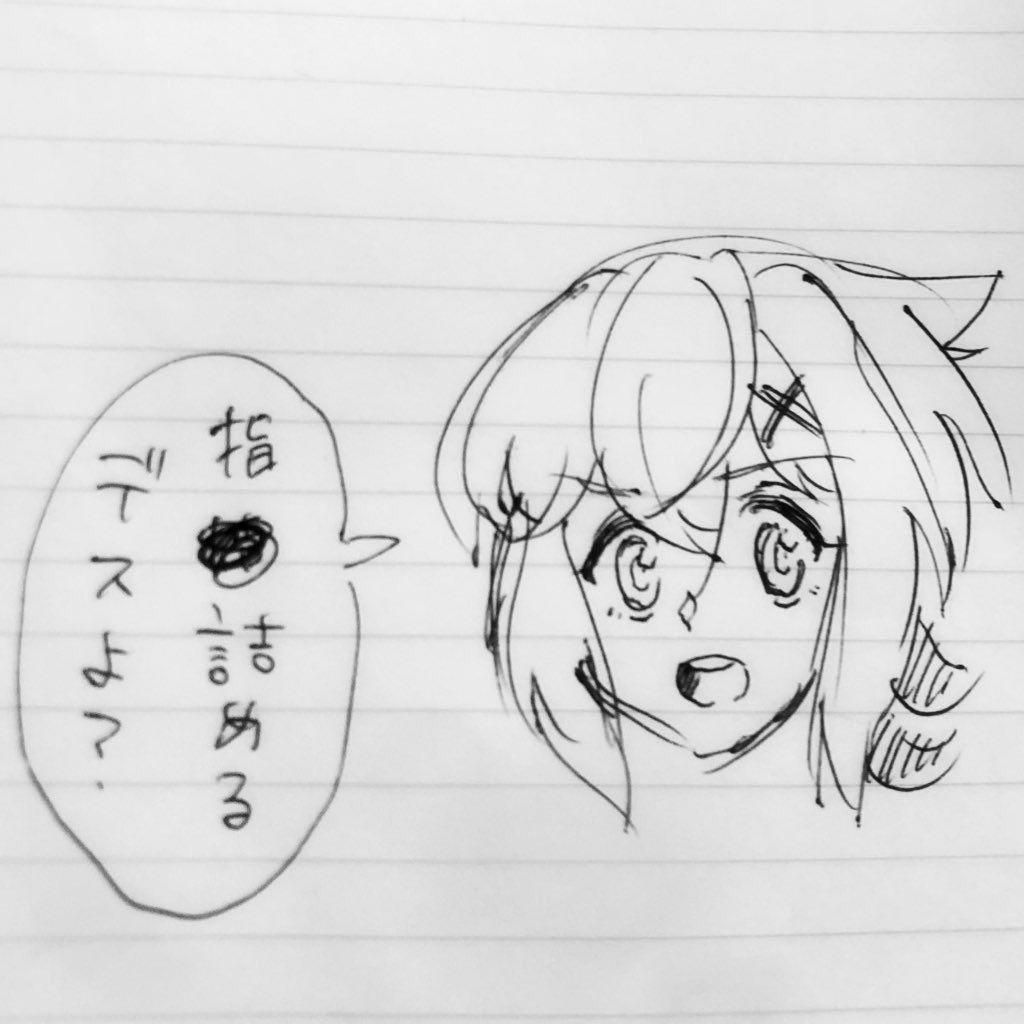 指詰める
デスよ?